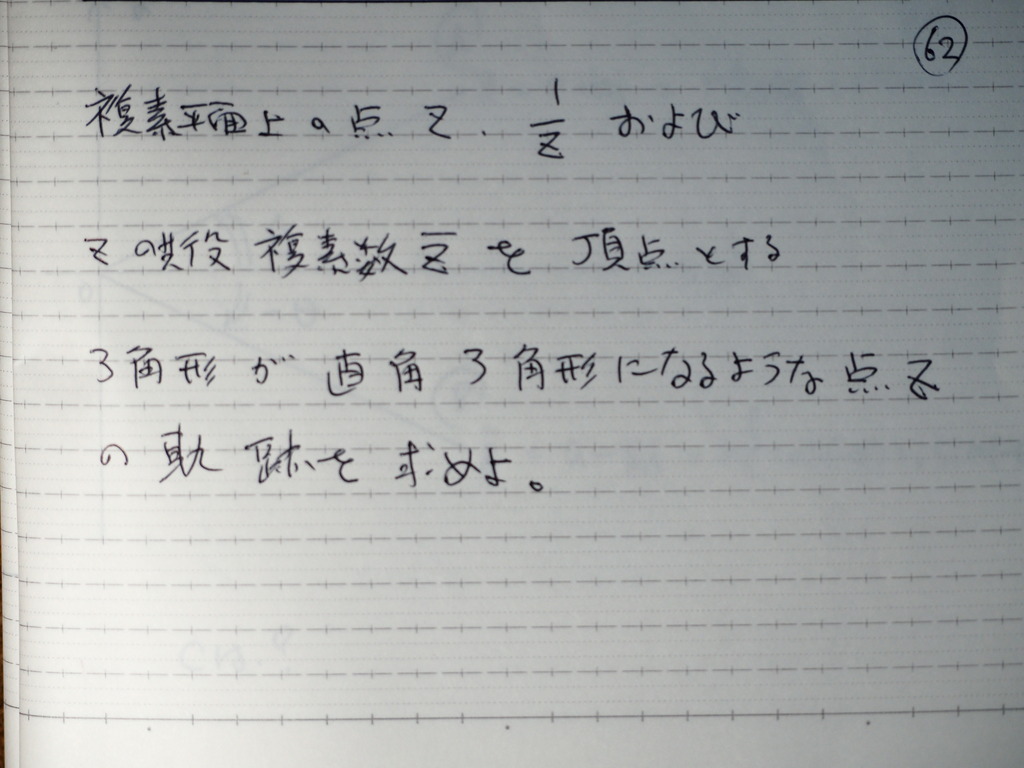 62
複素平面上の点 z、1/z および
zの共役複素数 z̅ を頂点とする
3角形が直角3角形になるような点 z
の軌跡を求めよ。